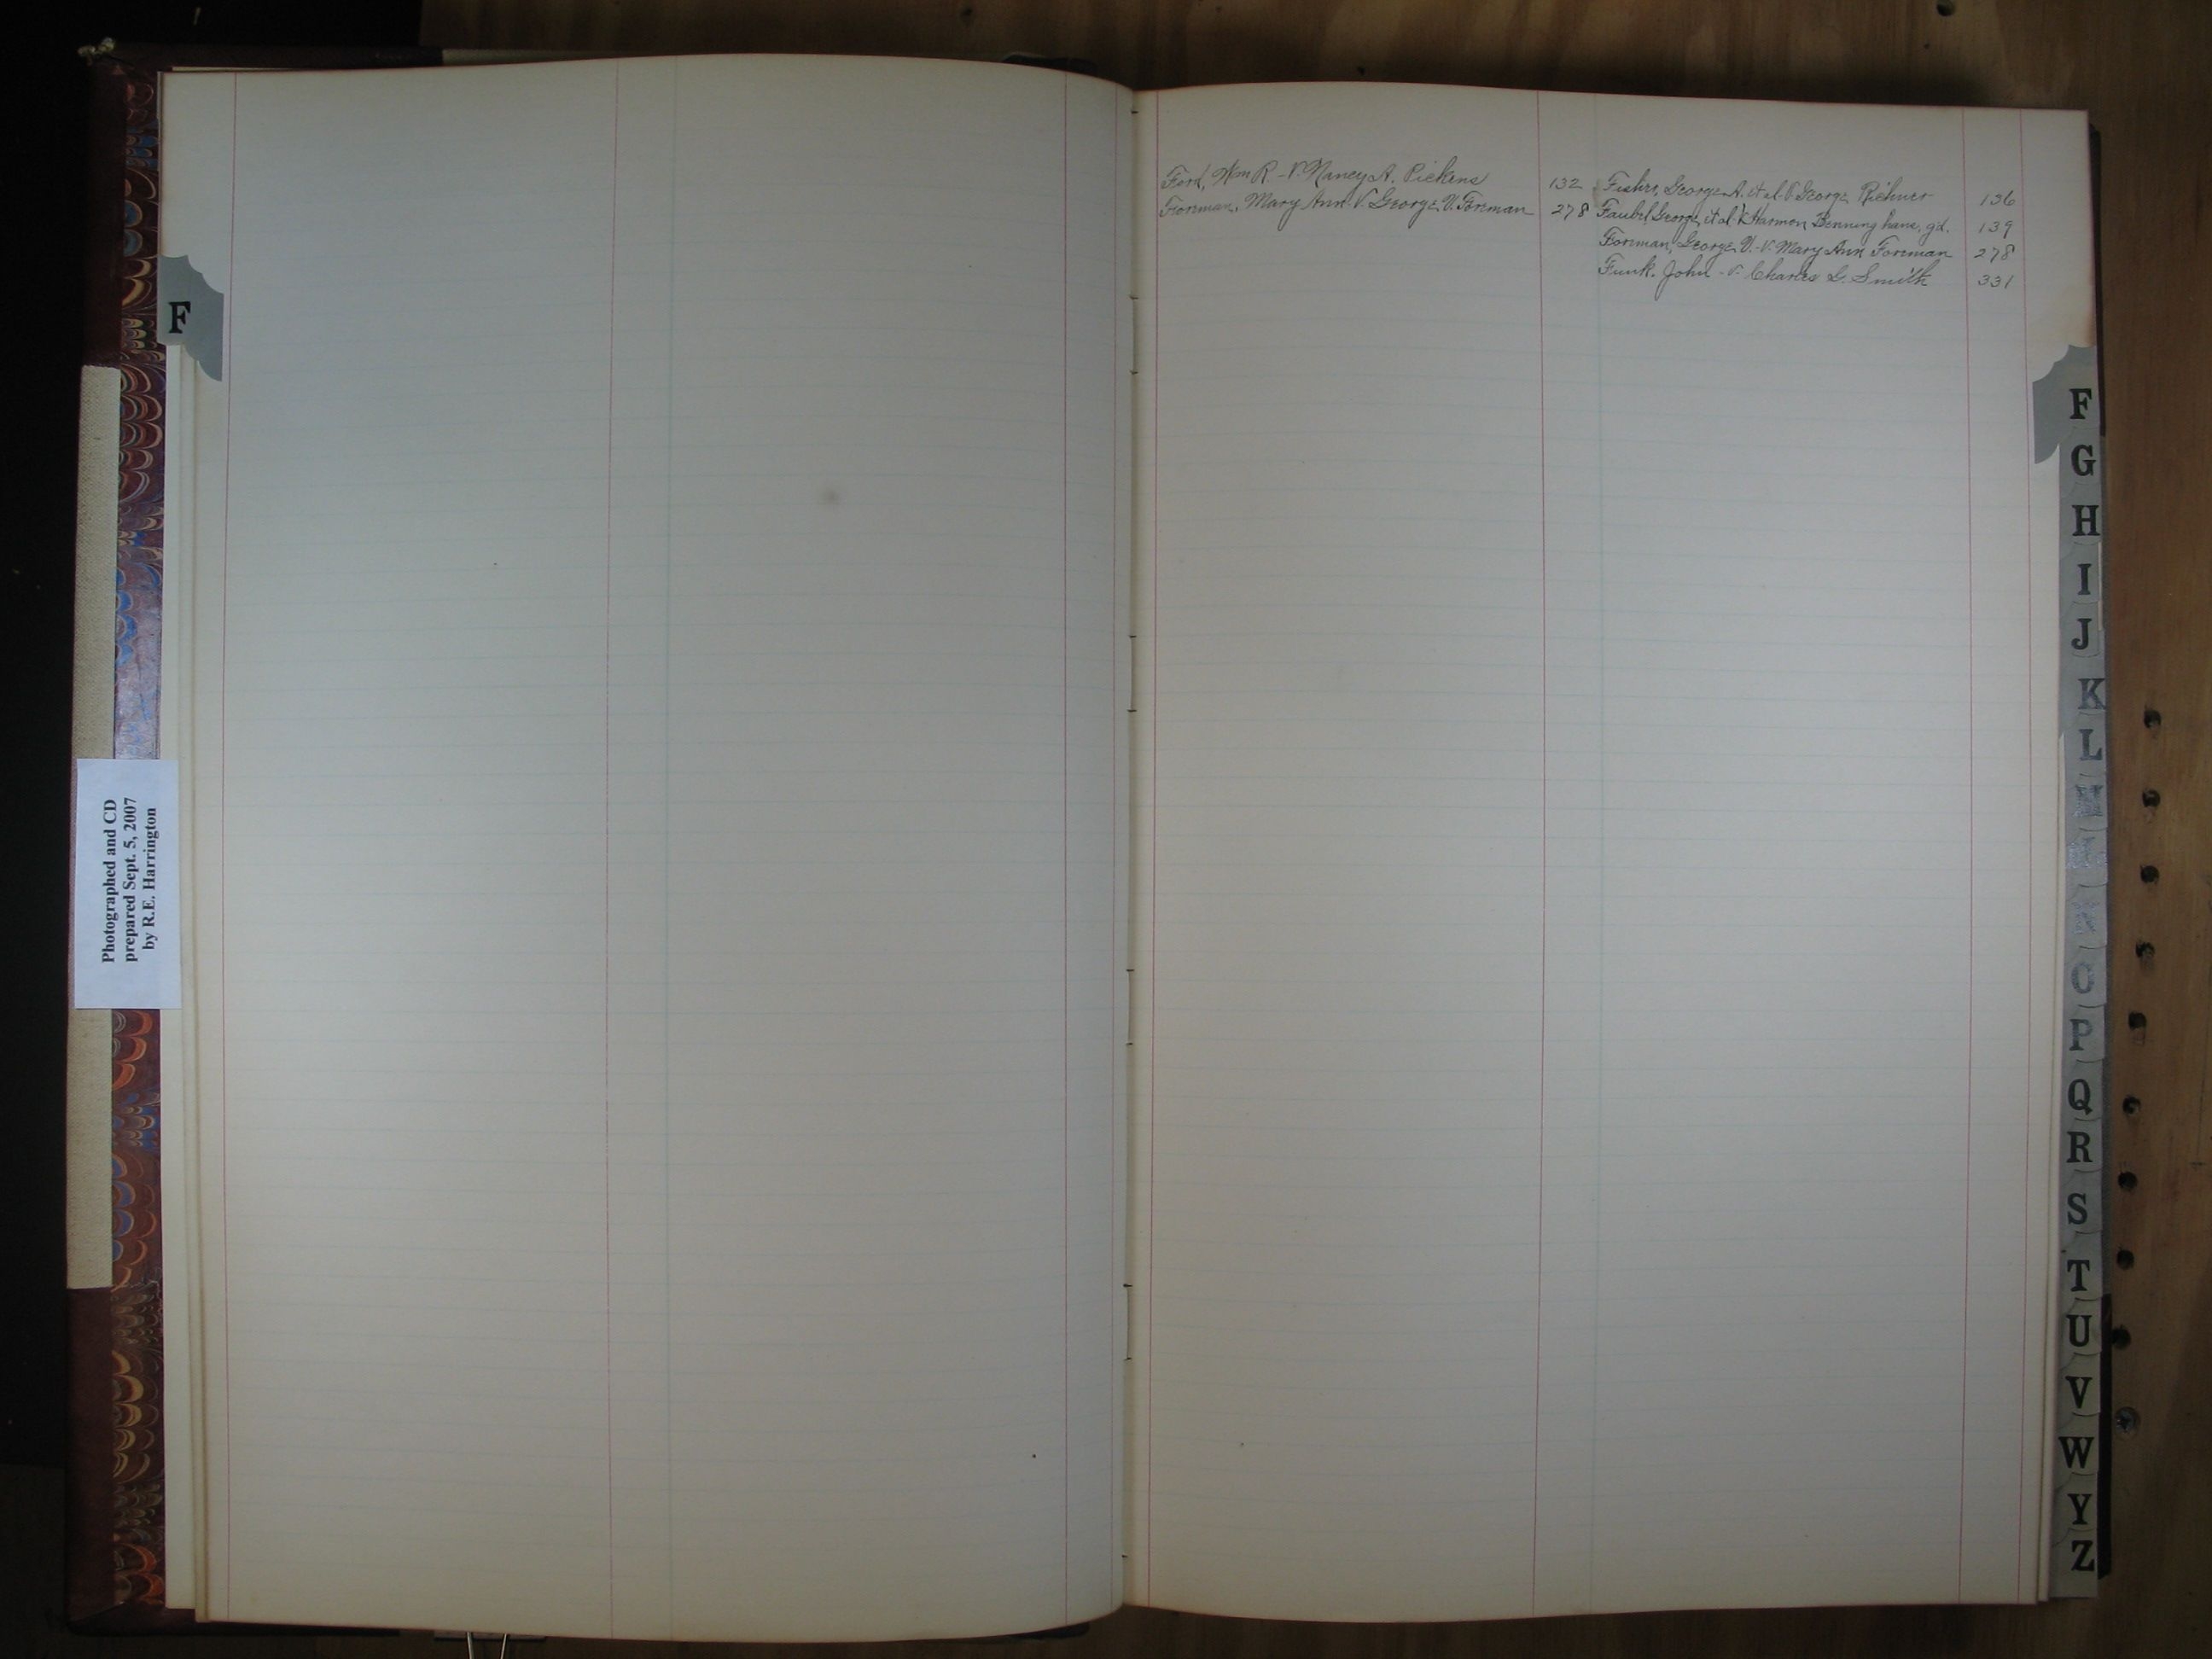 F
Photographed and CD
prepared Sept. 5, 2007
by R.E. Harrington
Ford, Wm R. - V. Nancy A. Pickens 132
Foreman, Mary Ann. V. George V. Foreman 278
Fisher, George A. et al. V. George Richner 136
Faubel, George, et al. V. Harmon Benninghans, gd. 139
Foreman, George V. - V. Mary Ann Foreman 278
Funk. John - V. Charles G. Smith 331
F
G
H
I
J
K
L
M
O
P
Q
R
S
T
U
V
W
Y
Z